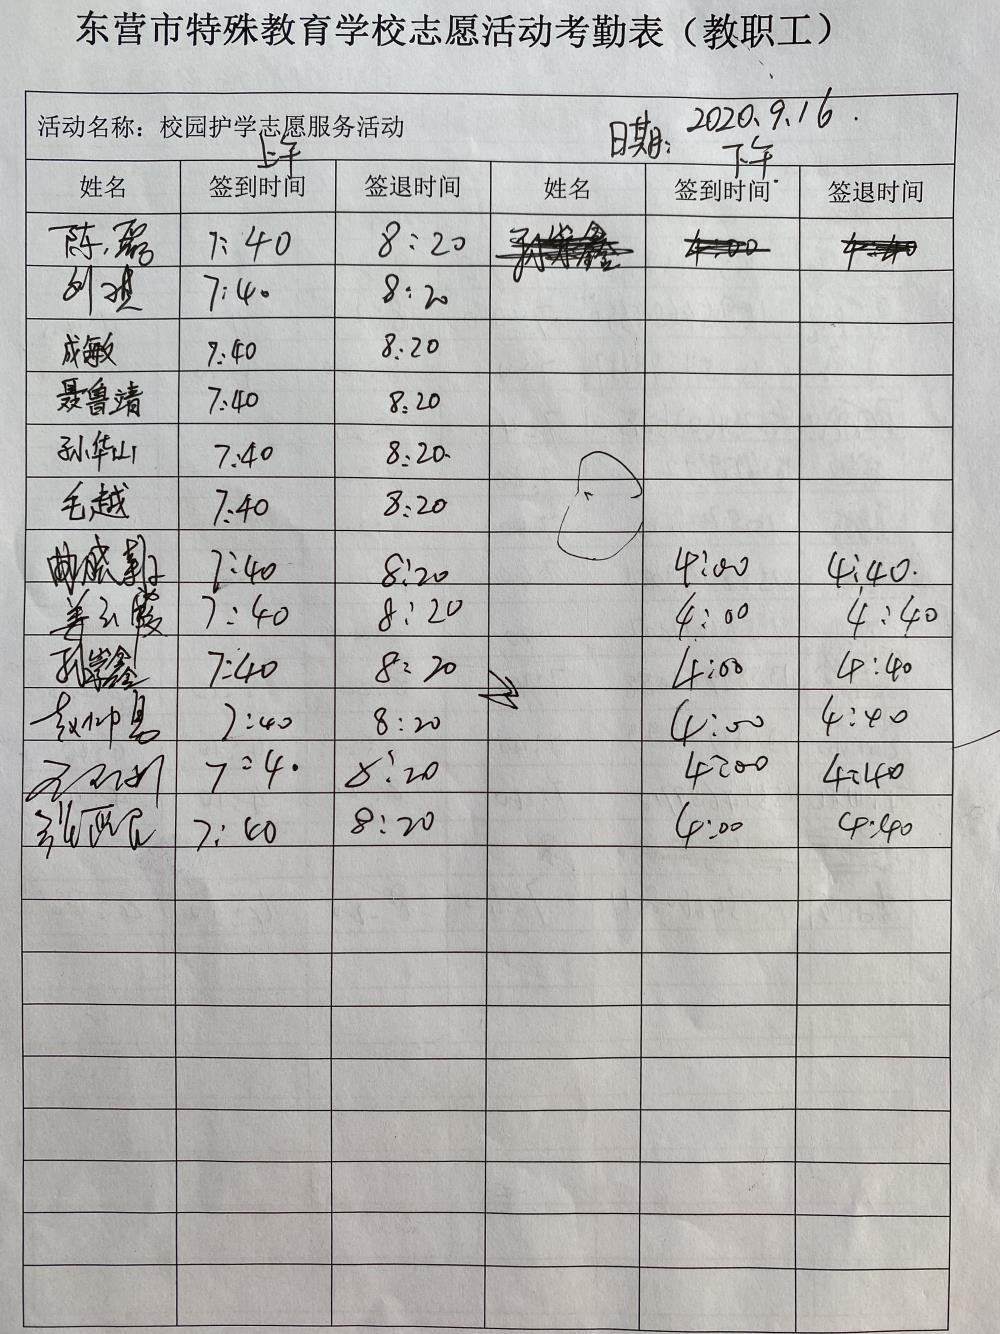 东营市特殊教育学校志愿活动考勤表（教职工）
活动名称：校园护学志愿服务活动 日期：2020.9.16.
上午 下午
姓名 签到时间 签退时间 姓名 签到时间 签退时间
陈磊 7:40 8:20 4:00 4:40
刘 7:40 8:20
成敏 7:40 8:20
聂鲁靖 7:40 8:20
孙华山 7:40 8:20
毛越 7:40 8:20
曲晓 7:40 8:20 4:00 4:40
姜玉霞 7:40 8:20 4:00 4:40
孙学鑫 7:40 8:20 4:00 4:40
赵仲昌 7:40 8:20 4:00 4:40
7:40 8:20 4:00 4:40
张西民 7:40 8:20 4:00 4:40